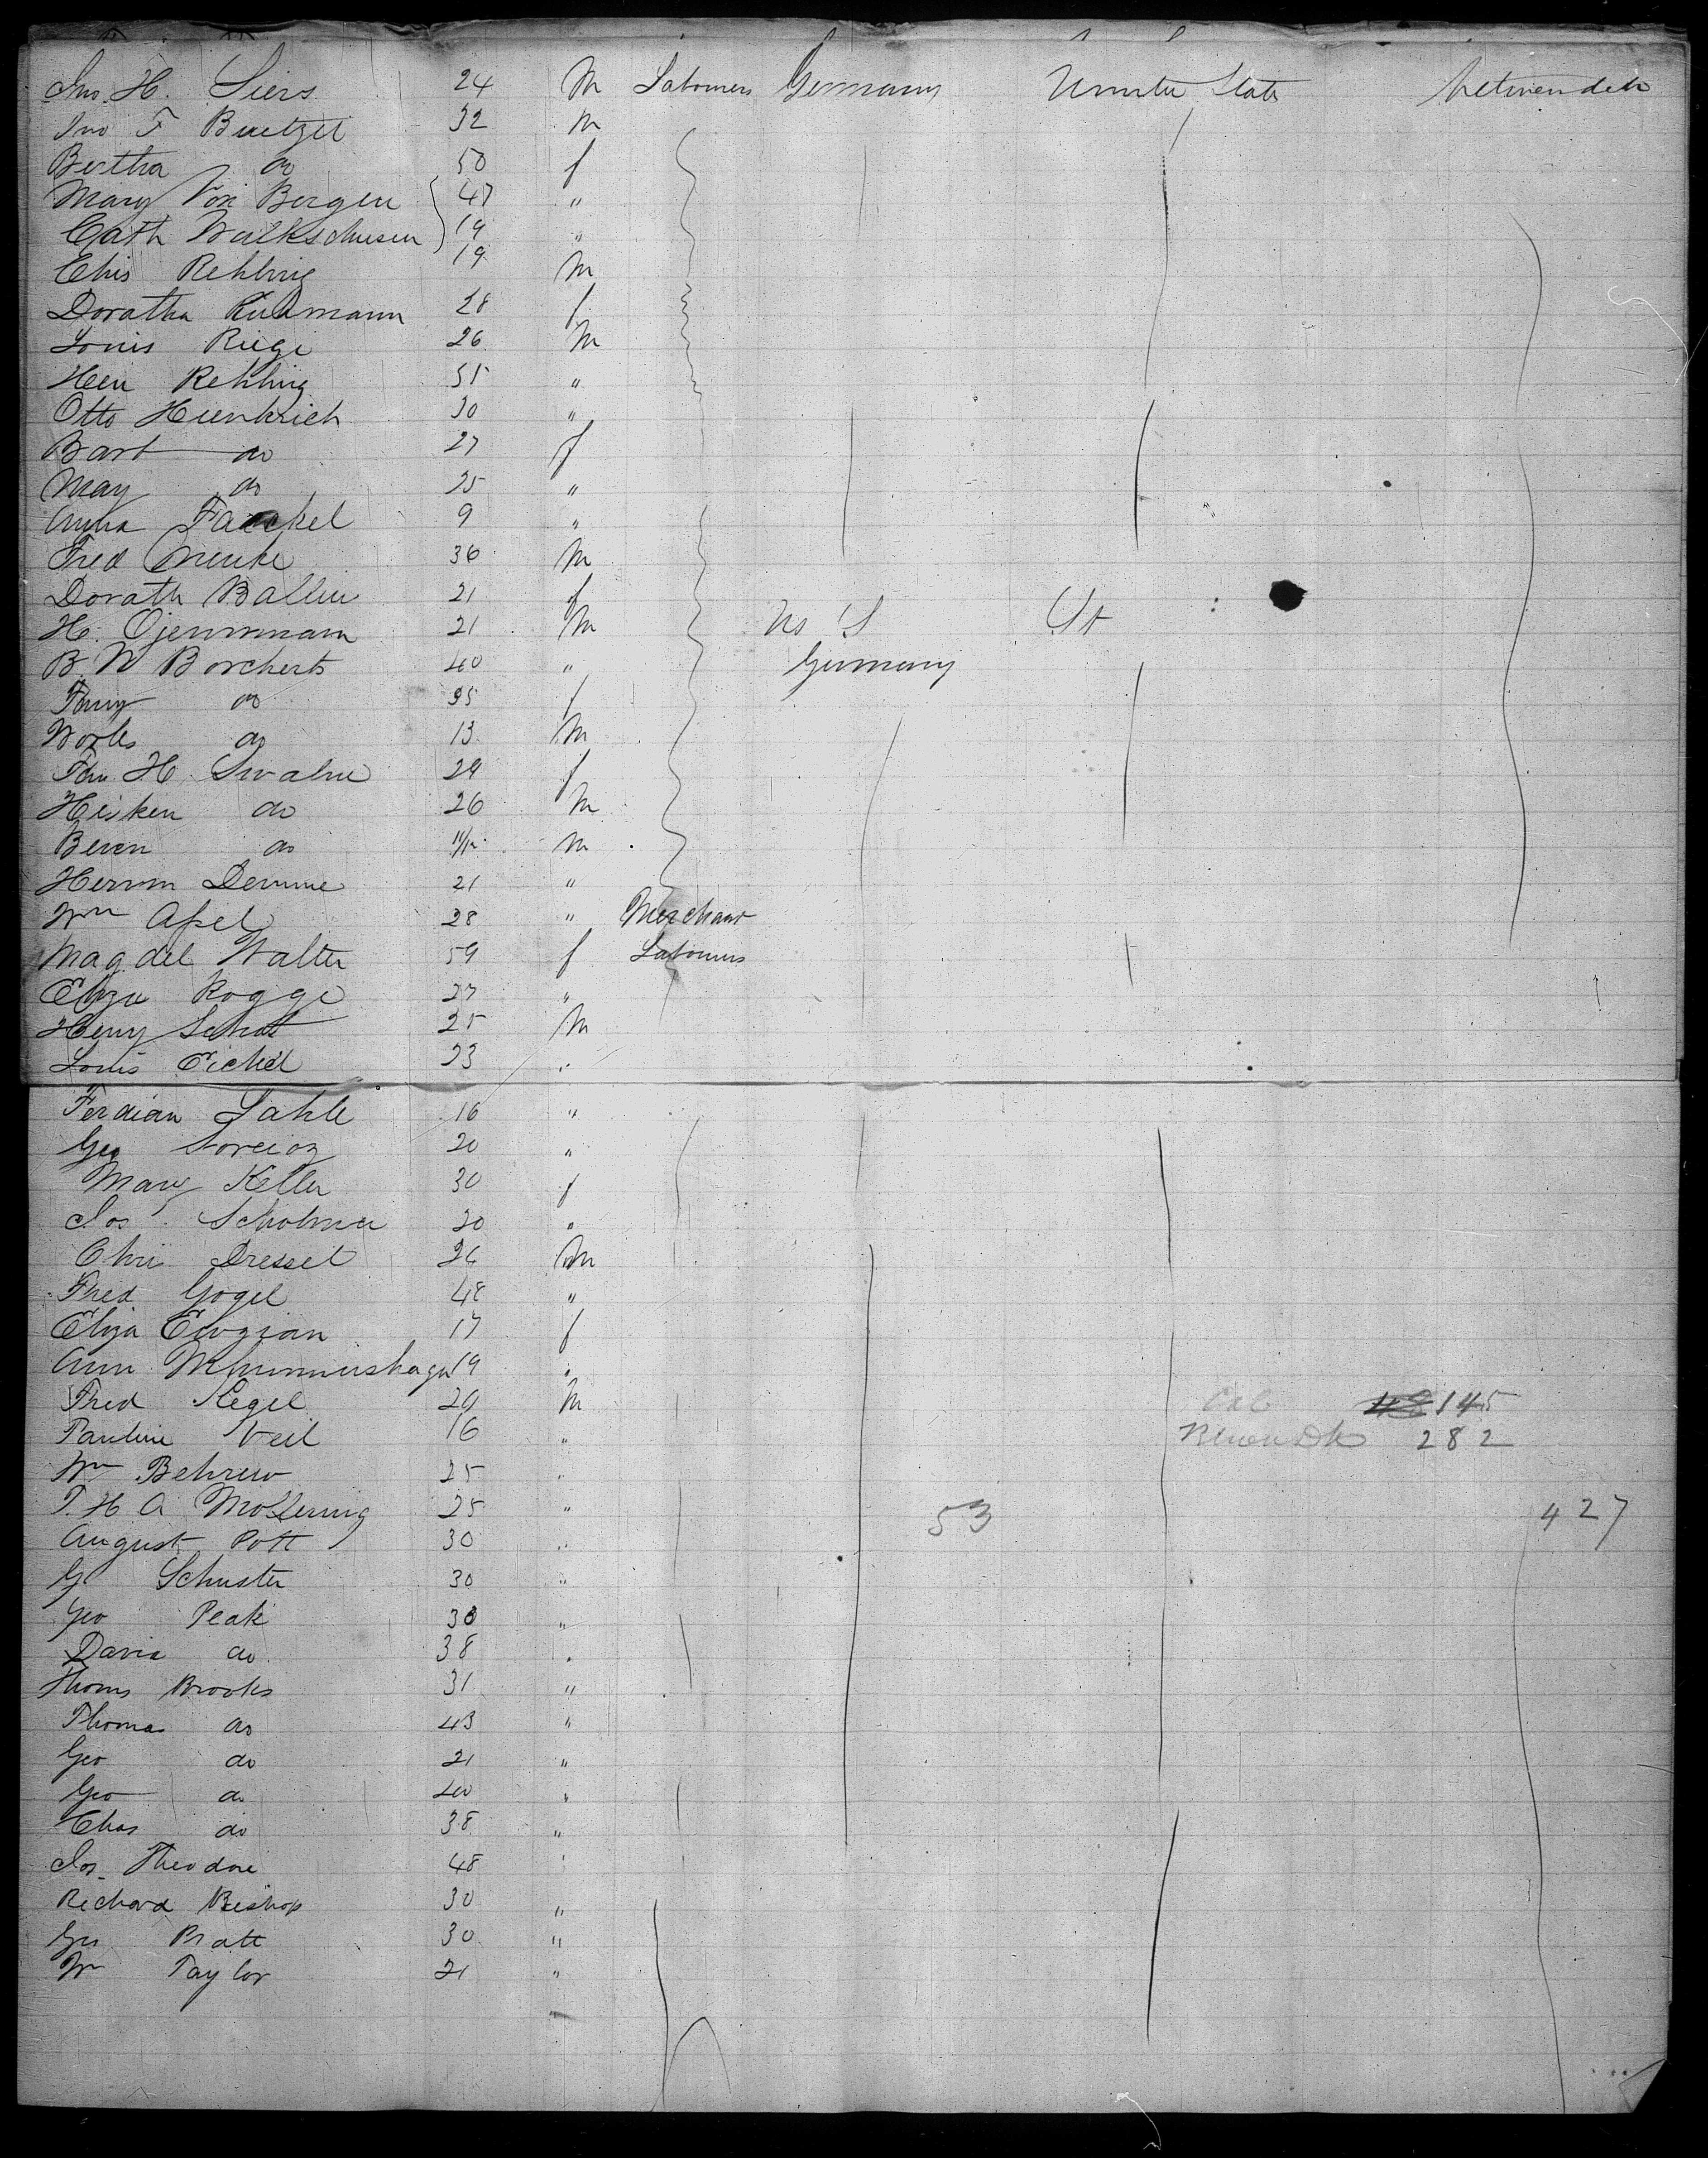 Jno. H. Siers 24 M Labourers Germany United State between deck
Jno F Buetzel 32 M
Bertha do 50 f
Mary Von Bergen 47 "
Cath 19 "
Chis Rehling 19 M
Doratha 28 f
Louis Riege 26 M
Hen Rehling 51 "
Otto Hienkrich 30 "
Bart do 27 f
May do 25 "
Anna 9 "
Fred Menke 36 M
Dorath Ballin 21 f
H. 21 M U S St
B. W Borcherts 40 " Germany
do 35 f
do 13 M
H. 29 f
Hisken do 26 M
Beren do 11/12 m
Herm Demme 21 "
Wm Apel 28 " Merchant
Magdel Walter 59 f Labourers
Eliza Rogge 27 "
Henry Schut 25 M
Louis Eickel 23 "
Ferdian Lahle 16 "
Geo 20 "
Mary Keller 30 f
Jos 20 "
Chri Dressel 26 M
Fred Gogel 48 "
Eliza 17 f
Ann 19 "
Fred Kegel 29 M Cab 145
Pauline Veil 16 " 282
Wm Behrew 25 "
T. H A Mollering 25 " 53 427
August Pott 30 "
G Schuster 30 "
Geo Peak 30 "
David do 38 "
Thoms Brooks 31 "
Thomas do 43 "
Geo do 21 "
Geo do 40 "
Chas do 38 "
Jos. Theodore 48 "
Richard Bishop 30 "
Geo Pratt 30 "
Wm Taylor 21 "